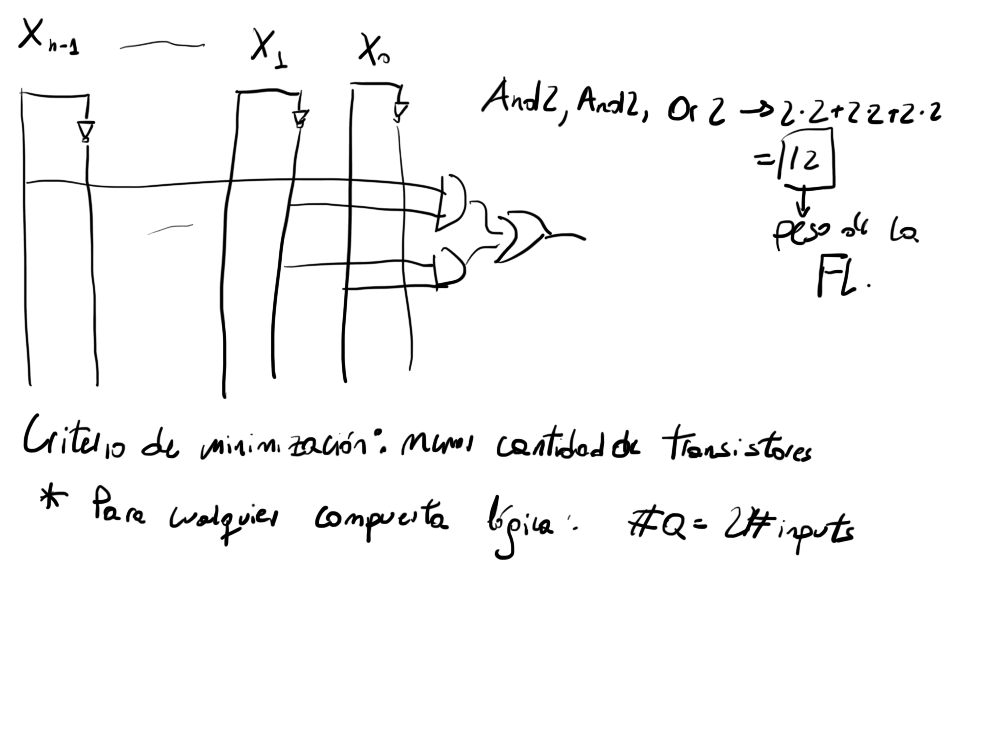 Xn-1 — X1 X0
And2, And2, Or 2 → 2·2+2·2+2·2
= 12
peso de la
FL.
Criterio de minimización: menor cantidad de transistores
* Para cualquier compuerta lógica: #Q = 2#inputs